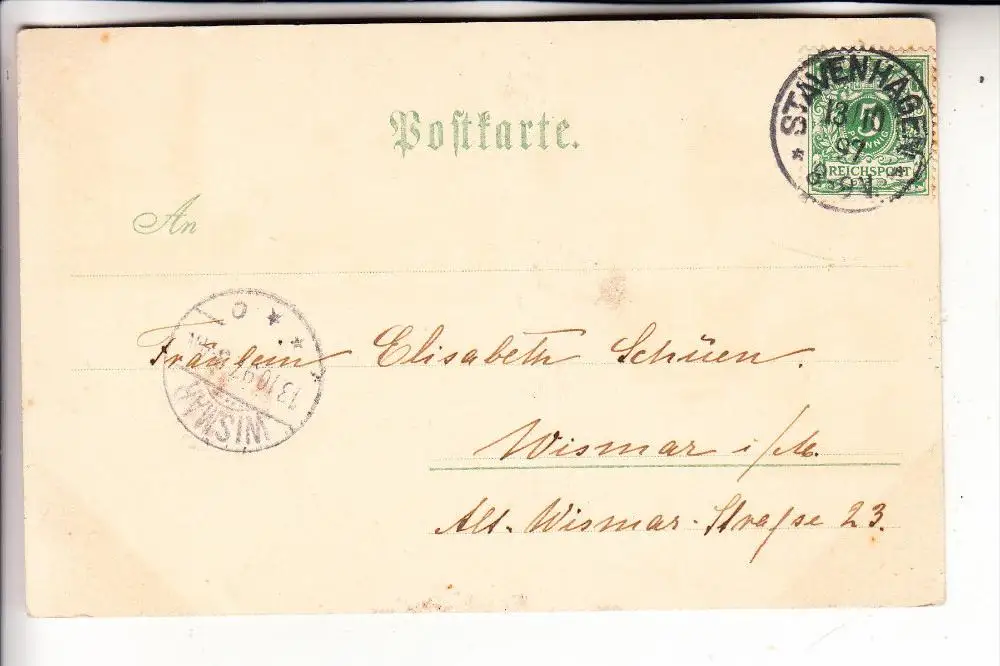 Postkarte.
STAVENHAGEN
13/10
97
8-9V.
5
PFENNIG
REICHSPOST
An
Fräulein Elisabeth Schüen.
Wismar i/M.
Alt-Wismar-Straße 23.
WISMAR
13.10.97